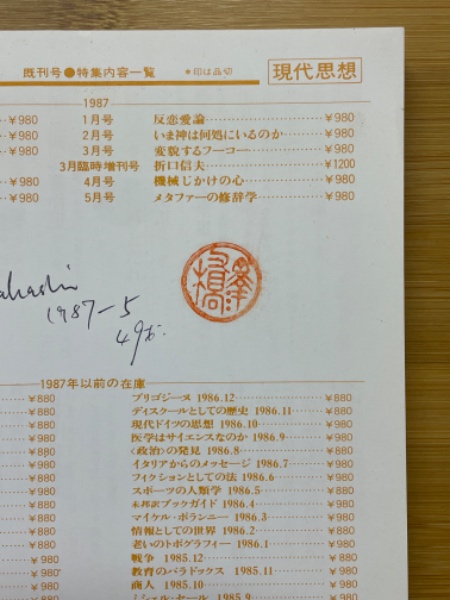 既刊号●特集内容一覧 *印は品切 現代思想
1987
￥980 1月号 反恋愛論 ￥980
￥980 2月号 いま神は何処にいるのか ￥980
￥980 3月号 変貌するフーコー ￥980
3月臨時増刊号 折口信夫 ￥1200
￥980 4月号 機械じかけの心 ￥980
￥980 5月号 メタファーの修辞学 ￥980
ahashi
1987-5
49才
1987年以前の在庫
￥880 プリゴジーヌ 1986.12 ￥880
￥880 ディスクールとしての歴史 1986.11 ￥880
￥880 現代ドイツの思想 1986.10 ￥880
￥980 医学はサイエンスなのか 1986.9 ￥880
￥880 〈政治〉の発見 1986.8 ￥880
￥880 イタリアからのメッセージ 1986.7 ￥880
￥880 フィクションとしての法 1986.6 ￥880
￥880 スポーツの人類学 1986.5 ￥880
￥880 未邦訳ブックガイド 1986.4 ￥880
￥880 マイケル・ポランニー 1986.3 ￥880
￥880 情報としての世界 1986.2 ￥880
￥880 老いのトポグラフィー 1986.1 ￥880
￥980 戦争 1985.12 ￥880
￥980 教育のパラドックス 1985.11 ￥880
￥980 商人 1985.10 ￥880
ミシェル・セール 1985.9